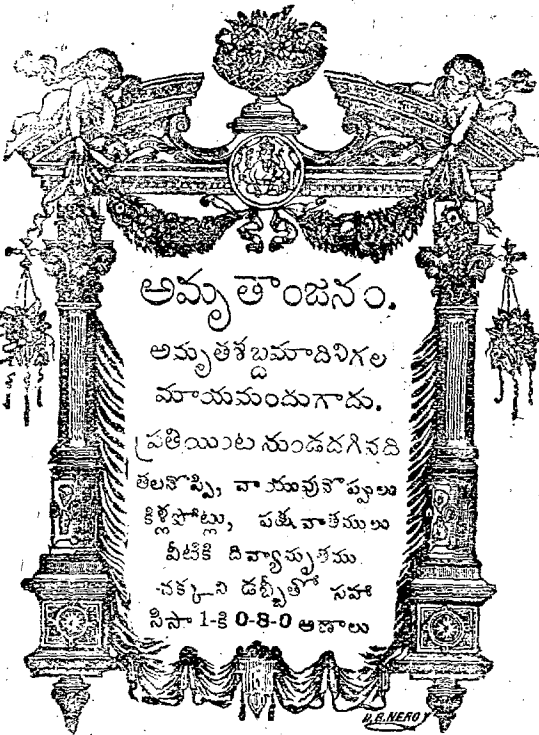 అమృతాంజనం.
అమృతశబ్దమాదినిగల
మాయమందుగాదు.
ప్రతియింట నుండదగినది
తలనొప్పి, వాయువునొప్పులు
కిళ్లపోట్లు, పక్షవాతములు
వీటికి దివ్యామృతము
చక్కని డబ్బీతో సహా
సీసా 1-కి 0-8-0 అణాలు